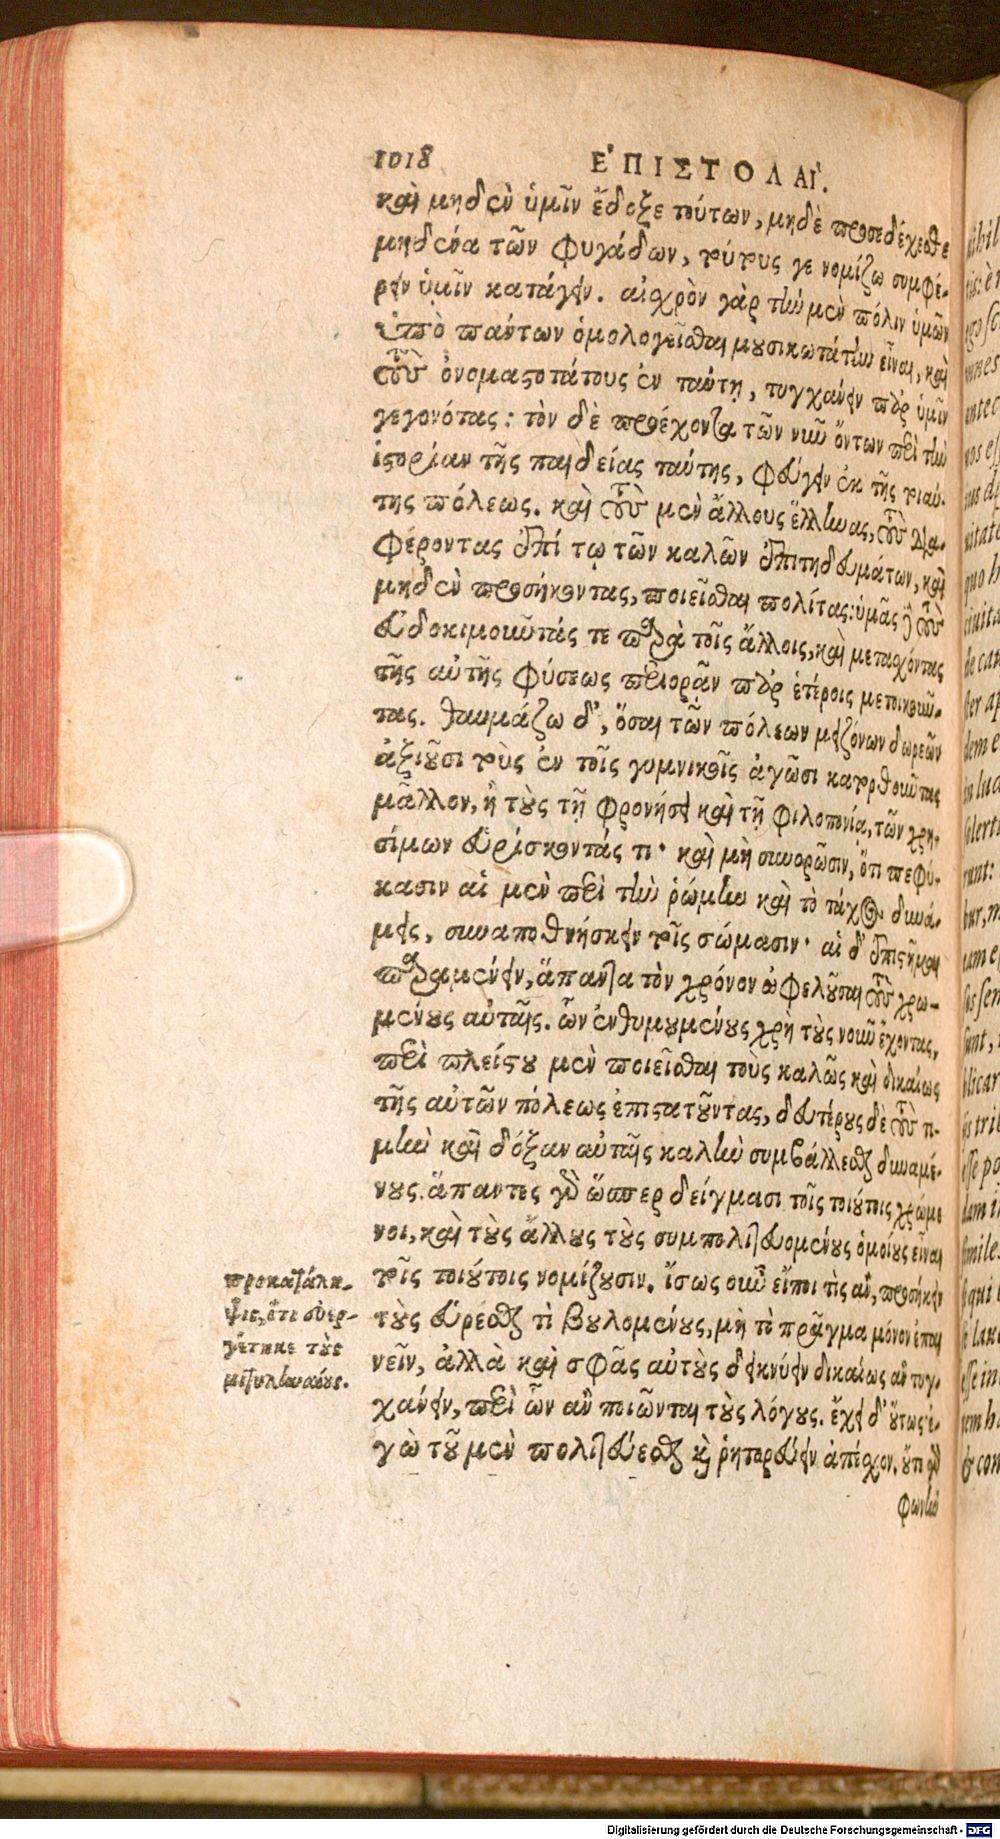 1018 ΕΠΙΣΤΟΛΑΙ.
καὶ μηδὲν ὑμῖν ἔδοξε τούτων, μηδὲ προσεδέχεσθε
μηδένα τῶν φυγάδων, τούτους γε νομίζω συμφέ-
ρειν ὑμῖν κατάγειν. αἰσχρὸν γὰρ τὴν μὲν πόλιν ὑμῶν
ὑπὸ πάντων ὁμολογεῖσθαι μουσικωτάτην εἶναι, καὶ
τοὺς ὀνομαστοτάτους ἐν ταύτῃ, τυγχάνειν παρ' ὑμῖν
γεγονότας: τὸν δὲ προέχοντα τῶν νῦν ὄντων περὶ τὴν
ἱστορίαν τῆς παιδείας ταύτης, φεύγειν ἐκ τῆς τοιαύ-
της πόλεως. καὶ τοὺς μὲν ἄλλους ἕλληνας, τοὺς δια-
φέροντας ἐπί τῳ τῶν καλῶν ἐπιτηδευμάτων, καὶ
μηδὲν προσήκοντας, ποιεῖσθαι πολίτας: ὑμᾶς δὲ τοὺς
εὐδοκιμοῦντάς τε παρὰ τοῖς ἄλλοις, καὶ μετασχόντας
τῆς αὐτῆς φύσεως περιορᾶν παρ' ἑτέροις μετοικοῦν-
τας. θαυμάζω δ', ὅσαι τῶν πόλεων μειζόνων δωρεῶν
ἀξιοῦσι τοὺς ἐν τοῖς γυμνικοῖς ἀγῶσι κατορθοῦντας
μᾶλλον, ἢ τοὺς τῇ φρονήσει καὶ τῇ φιλοπονίᾳ, τῶν χρη-
σίμων εὑρίσκοντάς τι· καὶ μὴ συνορῶσιν, ὅτι πεφύ-
κασιν αἱ μὲν περὶ τὴν ῥώμην καὶ τὸ τάχος δυνά-
μεις, συναποθνήσκειν τοῖς σώμασιν· αἱ δ' ἐπιστῆμαι
παραμένειν, ἅπαντα τὸν χρόνον ὠφελοῦσαι τοὺς χρω-
μένους αὐταῖς. ὧν ἐνθυμουμένους χρὴ τοὺς νοῦν ἔχοντας,
περὶ πλείστου μὲν ποιεῖσθαι τοὺς καλῶς καὶ δικαίως
τῆς αὑτῶν πόλεως ἐπιστατοῦντας, δευτέρους δὲ τοὺς τι-
μὴν καὶ δόξαν αὐταῖς καλὴν συμβάλλεσθαι δυναμέ-
νους. ἅπαντες γὰρ ὥσπερ δείγμασι τοῖς τοιούτοις χρώμε
νοι, καὶ τοὺς ἄλλους τοὺς συμπολιτευομένους ὁμοίους εἶναι
τοῖς τοιούτοις νομίζουσιν. ἴσως οὖν εἴποι τὶς ἂν, προσήκειν
τοὺς εὑρέσθαι τὶ βουλομένους, μὴ τὸ πρᾶγμα μόνον ἐπαι
νεῖν, ἀλλὰ καὶ σφᾶς αὐτοὺς δεικνύειν δικαίως ἂν τυγ-
χάνειν, περὶ ὧν ἂν ποιῶνται τοὺς λόγους. ἔχει δ' οὕτως ἐ-
γὼ τοῦ μὲν πολιτεύεσθαι καὶ ῥητορεύειν ἀπέσχον. οὔτε γὰρ
φωνὴν
προκατάλη-
ψις, ὅτι εὐερ-
γέτηκε τοὺς
μιτυληναίους.
Digitalisierung gefördert durch die Deutsche Forschungsgemeinschaft - DFG